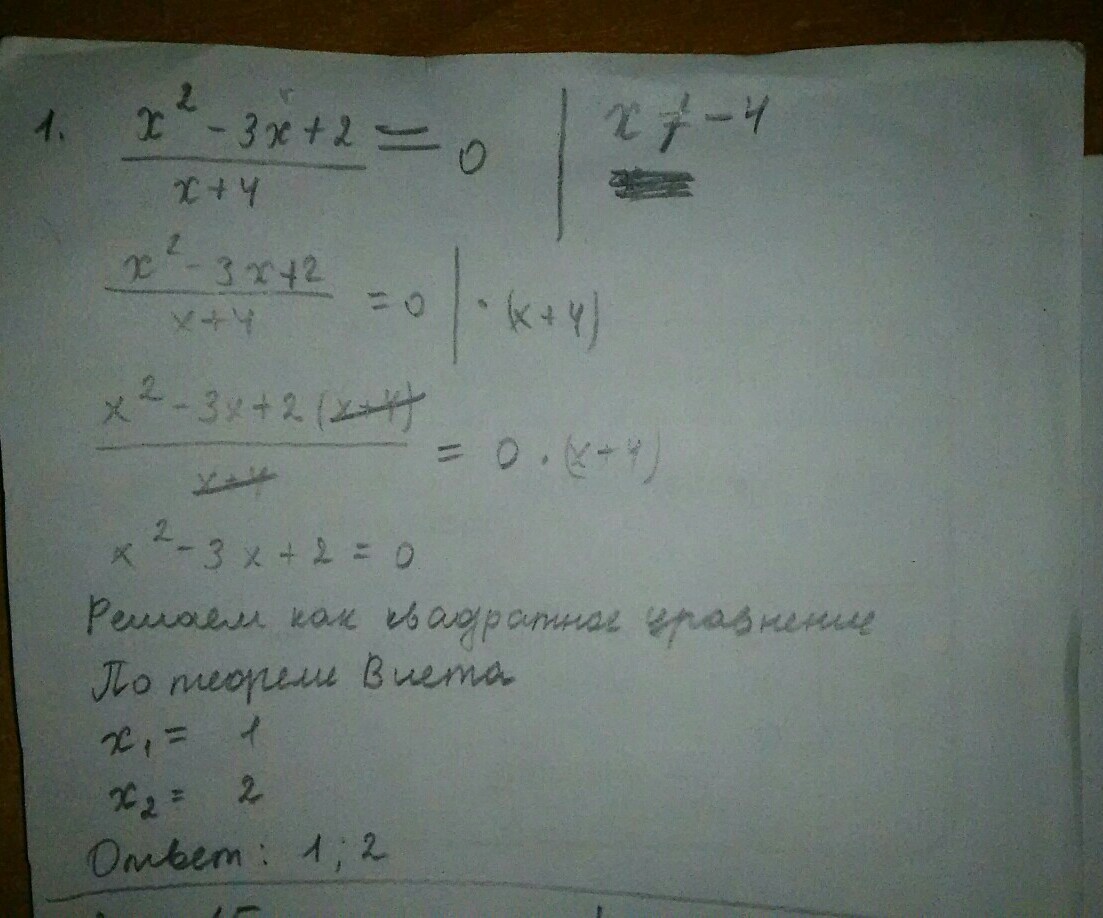 1. x² - 3x + 2 / x + 4 = 0 | x ≠ -4
x² - 3x + 2 / x + 4 = 0 | · (x + 4)
x² - 3x + 2 (x + 4) / x + 4 = 0 · (x + 4)
x² - 3x + 2 = 0
Решаем как квадратное уравнение
По теореме Виета
x₁ = 1
x₂ = 2
Ответ: 1; 2